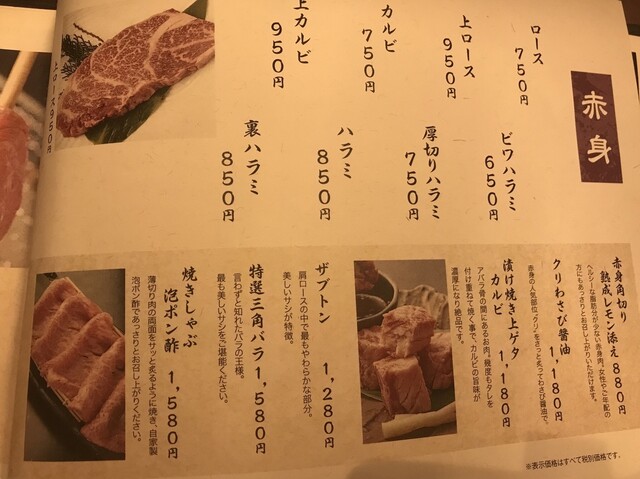 赤身
ロース
750円
上ロース
950円
カルビ
750円
上カルビ
950円
上ロース950円
ビワハラミ
650円
厚切りハラミ
750円
ハラミ
850円
裏ハラミ
850円
赤身角切り
熟成レモン添え 880円
ヘルシーな脂肪分が少ない赤身肉。女性やご年配の
方にもあっさりとお召し上がりいただけます。
クリわさび醤油 1,180円
赤身の人気部位“クリ”をさっと炙ってわさび醤油で。
漬け焼き上ゲタ
カルビ 1,180円
アバラ骨の間にあるお肉。幾度もタレを
付け重ねて焼く事で、カルビの旨味が
濃厚になり絶品です。
ザブトン 1,280円
肩ロースの中で最もやわらかな部分。
美しいサシが特徴。
特選三角バラ 1,580円
言わずと知れたバラの王様。
最も美しいサシをご堪能ください。
焼きしゃぶ
泡ポン酢 1,580円
薄切り肉の両面をサッと炙るように焼き、自家製
泡ポン酢であっさりとお召し上がりください。
※表示価格はすべて税別価格です。